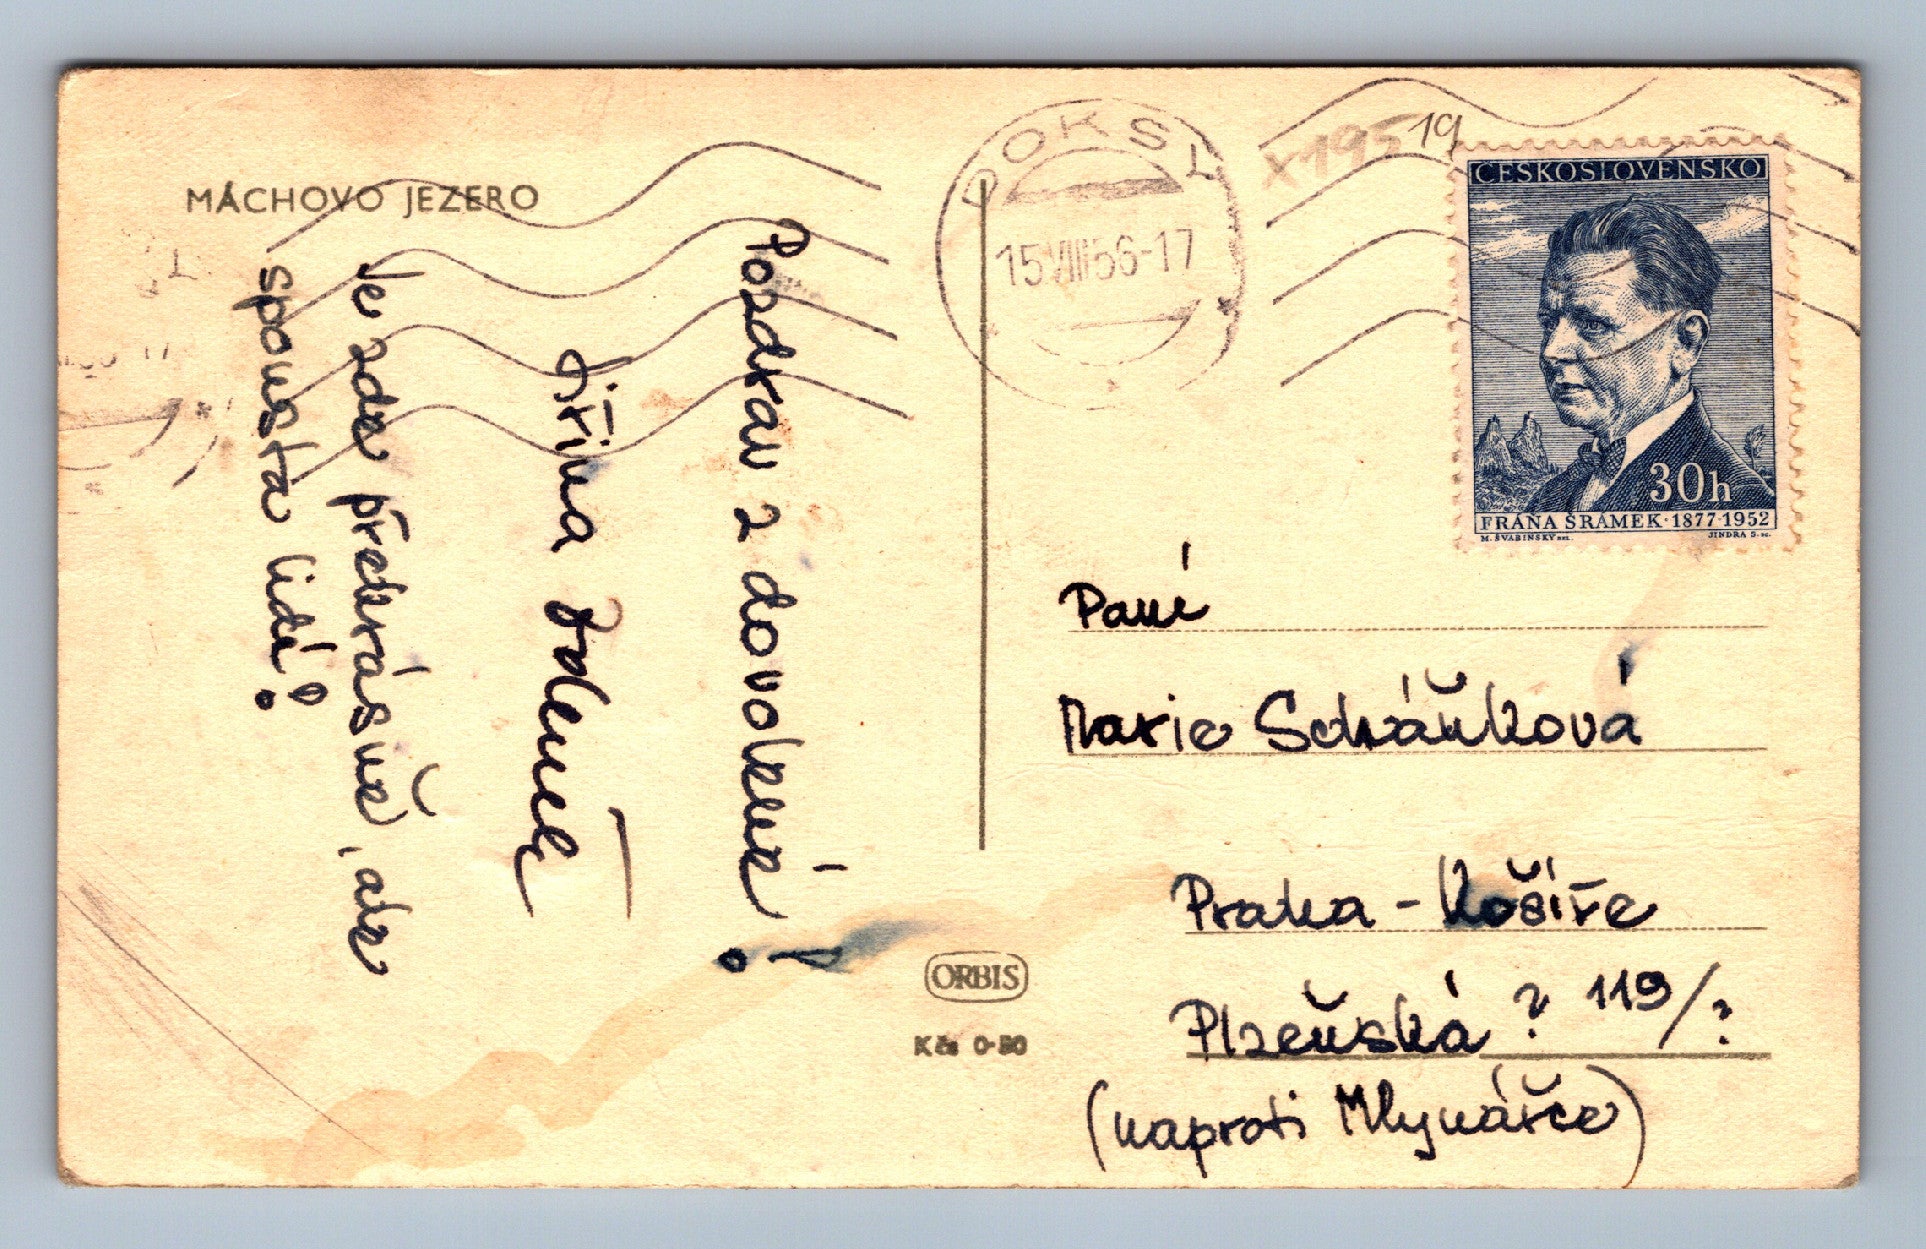 MÁCHOVO JEZERO
Pozdrav z dovolené!
Jiřina
Je zde překrásně, ale
spousta lidí!
DOKSY
15.VIII.56-17
x195
19
ČESKOSLOVENSKO
30h
FRÁŇA ŠRÁMEK·1877·1952
M. ŠVABINSKÝ DEL.
JINDRA S. SC.
Paní
Marie Scháňková
Praha - Košíře
Plzeňská ? 119/?
(naproti Mlynářce)
ORBIS
Kčs 0·80